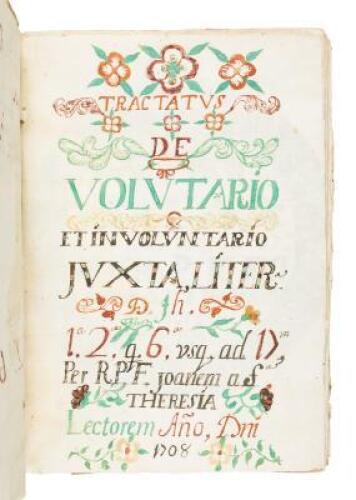 TRACTATVS
DE
VOLVTARIO
ET INVOLVNTARIO
JVXTA, LITER^a.
D. Th.
1.^a 2.^ae q. 6.^a vsq, ad 17,^am
Per R.P.F. joanem a S.^ta
THERESIA
Lectorem Año, Dni
1708